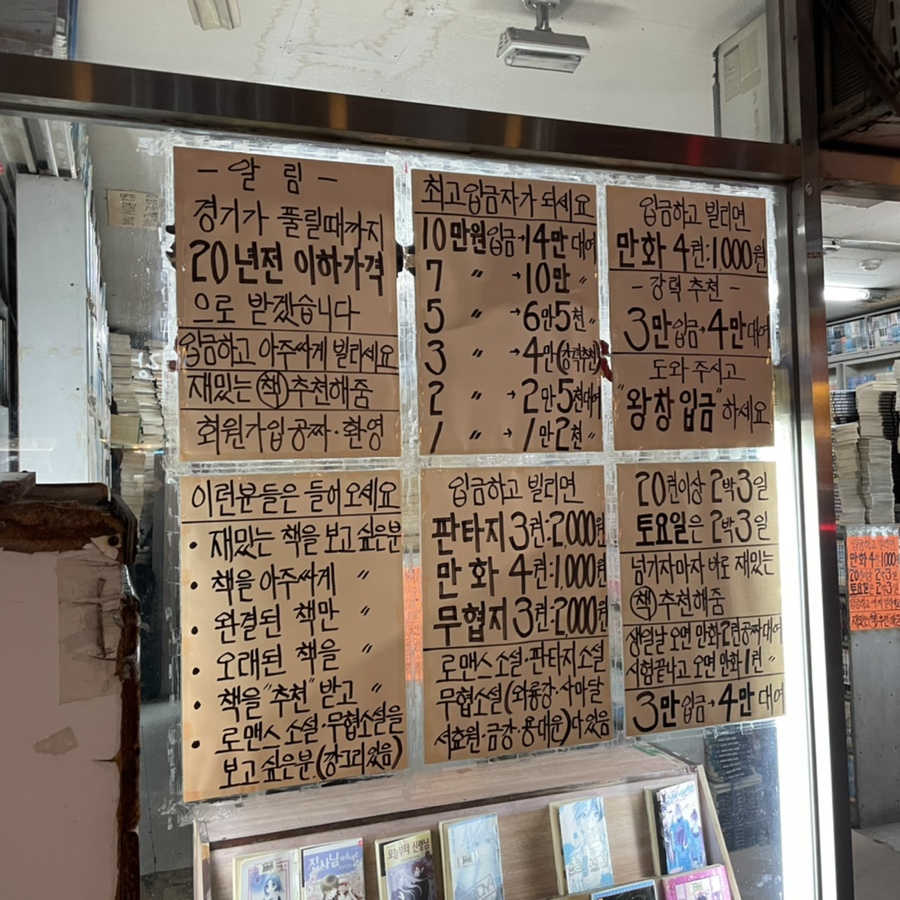 - 알 림 -
경기가 풀릴때까지
20년전 이하가격
으로 받겠습니다
입금하고 아주싸게 빌리세요
재밌는 책 추천해줌
회원가입공짜·환영
최고입금자가 되세요
10만원입금→14만대여
7 〃 →10만 〃
5 〃 →6만5천〃
3 〃 →4만(강력추천)
2 〃 →2만5천대여
1 〃 →1만2천〃
입금하고 빌리면
만화 4권:1,000원
- 강력 추천 -
3만입금→4만대여
도와 주시고
"왕창 입금"하세요
이런분들은 들어오세요
• 재밌는 책을 보고 싶은분
• 책을 아주싸게 〃
• 완결된 책만 〃
• 오래된 책을 〃
• 책을"추천"받고 〃
• 로맨스 소설·무협소설을
보고 싶은분.(깡그리있음)
입금하고 빌리면
판타지 3권:2,000원
만 화 4권:1,000원
무협지 3권:2,000원
로맨스소설·판타지소설
무협소설(와룡강·사마달
서효원·금강·용대운)다있음
20권이상 2박3일
토요일은 2박3일
넘기자마자 바로 재밌는
책 추천해줌
생일날 오면 만화2권공짜대여
시험끝나고 오면 만화1권 〃
3만입금→4만 대여
입금하고 빌리면
만화 4권:1,000원
토요일은 2박3일
집사님
오늘부터 신령님